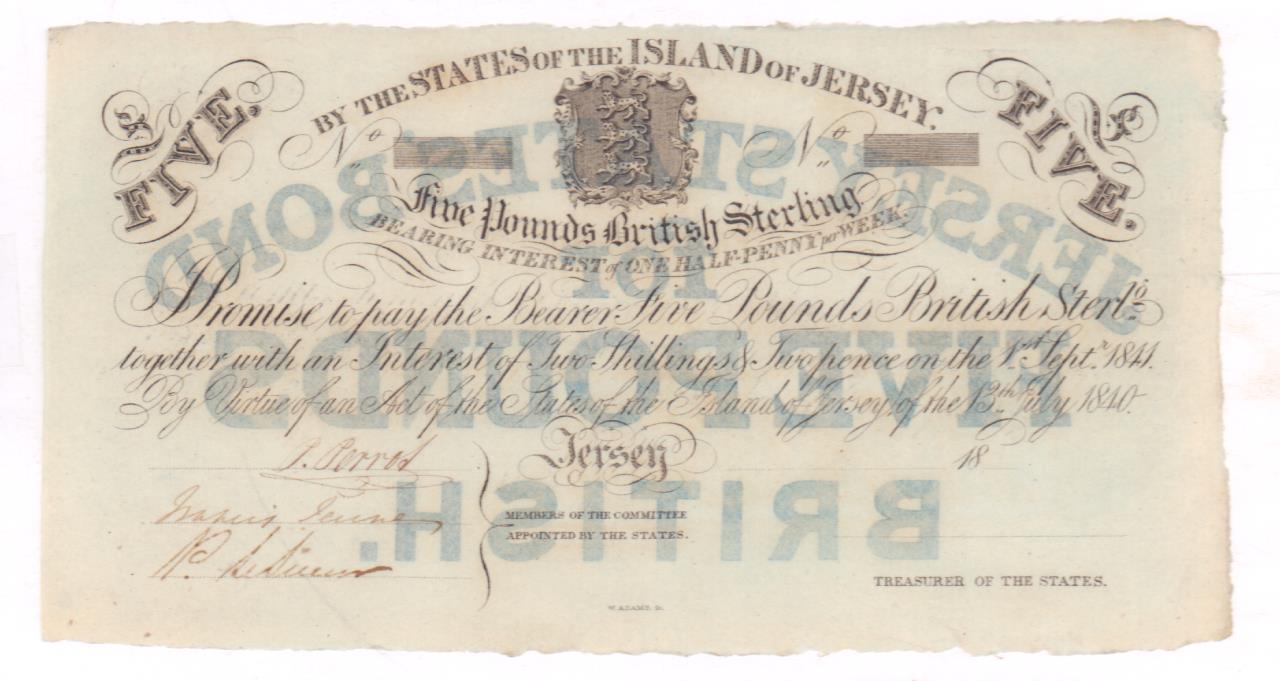 BY THE STATES OF THE ISLAND OF JERSEY.
£ FIVE.
£ FIVE.
No
No
Five Pounds British Sterling
BEARING INTEREST of ONE HALF-PENNY per WEEK.
I Promise to pay the Bearer Five Pounds British Sterlg
together with an Interest of Two Shillings & Two pence on the 1st Septr. 1841.
By Virtue of an Act of the States of the Island of Jersey, of the 13th July 1840.
P. Perrot
Jersey
18
Francis
MEMBERS OF THE COMMITTEE
APPOINTED BY THE STATES.
P.
TREASURER OF THE STATES.
W. ADAMS, Sc.
JERSEY STATES' BOND
FOR
FIVE POUNDS
BRITISH.